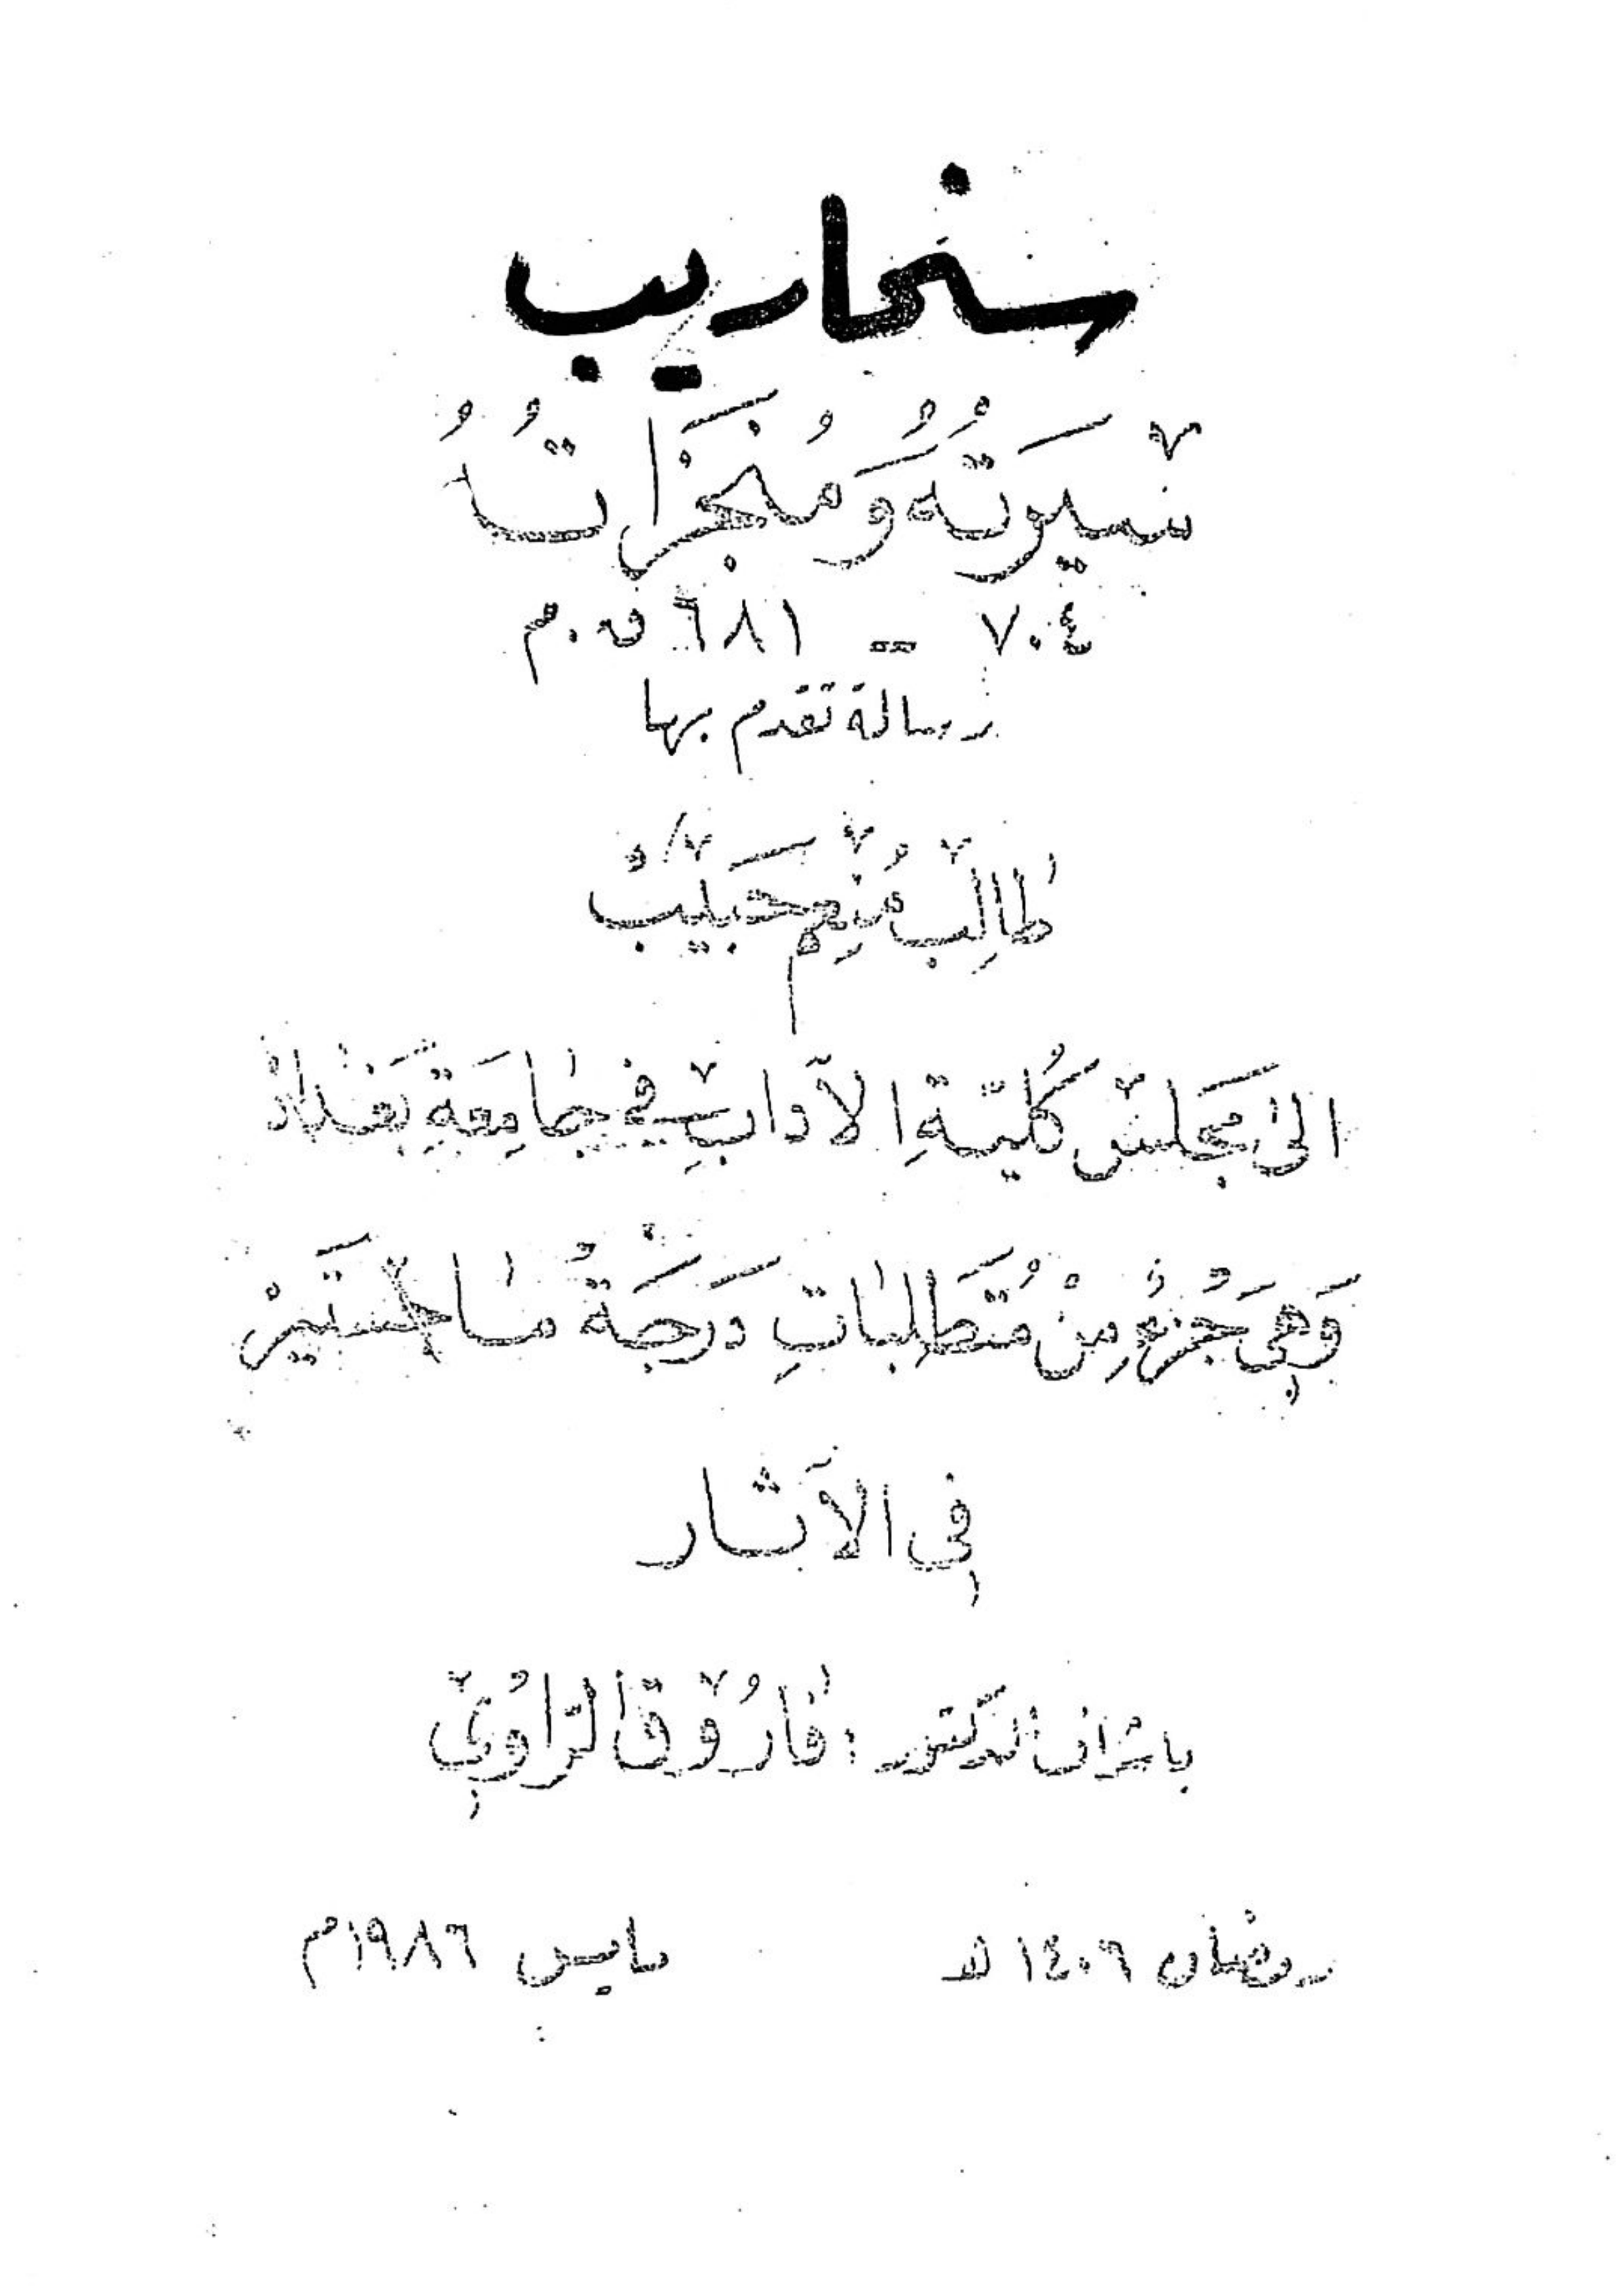 سنحاريب
سيرَتُهُ وَمُنجَزَاتُهُ
٧٠٤ - ٦٨١ ق.م
رسالة تقدم بها
طالِب مُنعِم حَبيب
الى مَجلس كُليّةِ الآدابِ في جامِعَةِ بَغداد
وَهِيَ جُزءٌ مِنْ مُتَطَلباتِ دَرَجَةُ ماجستَير
في الآثار
باشراف الدكتور : فارُوق الرّاوُي
رمضان ١٤٠٦ هـ مايس ١٩٨٦م